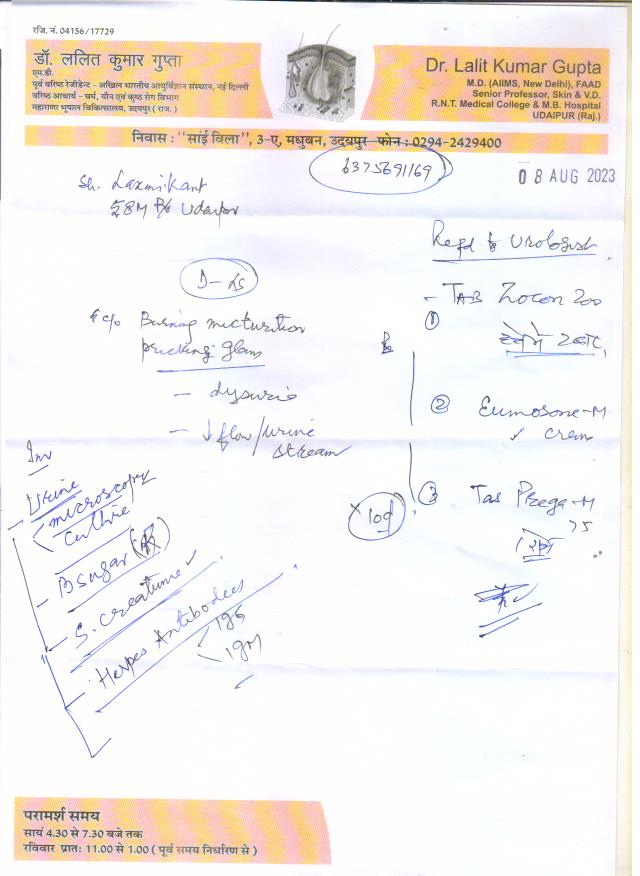 रजि. नं. 04156/17729
डॉ. ललित कुमार गुप्ता
एम.डी.
पूर्व वरिष्ठ रेजीडेन्ट - अखिल भारतीय आयुर्विज्ञान संस्थान, नई दिल्ली
वरिष्ठ आचार्य - चर्म, यौन एवं कुष्ठ रोग विभाग
महाराणा भूपाल चिकित्सालय, उदयपुर ( राज. )
Dr. Lalit Kumar Gupta
M.D. (AIIMS, New Delhi), FAAD
Senior Professor, Skin & V.D.
R.N.T. Medical College & M.B. Hospital
UDAIPUR (Raj.)
निवास : "सांई विला", 3-ए, मधुबन, उदयपुर फोन : 0294-2429400
6375691169
08 AUG 2023
Sh. Laxmikant
58M R/o Udaipur
Refd to Urologist
D-LS
c/o Burning micturition
pricking glans
- dysuria
- ↓ flow/urine
stream
- TAB Zocon 200
①
② Eumosone-M
cream
③ Tab Prega-M
75
x 10d
Inv
- Urine
microscopy
culture
- B sugar (R)
- S. creatinine
- Herpes Antibodies
IgG
IgM
परामर्श समय
सायं 4.30 से 7.30 बजे तक
रविवार प्रातः 11.00 से 1.00 ( पूर्व समय निर्धारण से )